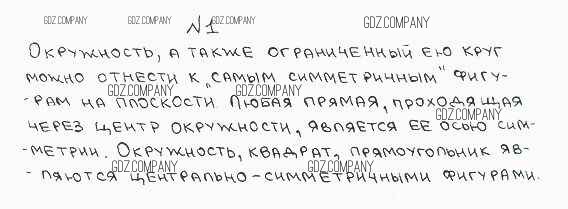 GDZ.COMPANY GDZ.COMPANY GDZ.COMPANY GDZ.COMPANY
N1
Окружность, а также ограниченный ею круг
можно отнести к "самым симметричным" фигу-
GDZ.COMPANY GDZ.COMPANY
-рам на плоскости Любая прямая, проходящая
GDZ.COMPANY
через центр окружности, является ее осью сим-
-метрии. Окружность, квадрат, прямоугольник яв-
GDZ.COMPANY GDZ.COMPANY
- ляются центрально-симметричными фигурами.